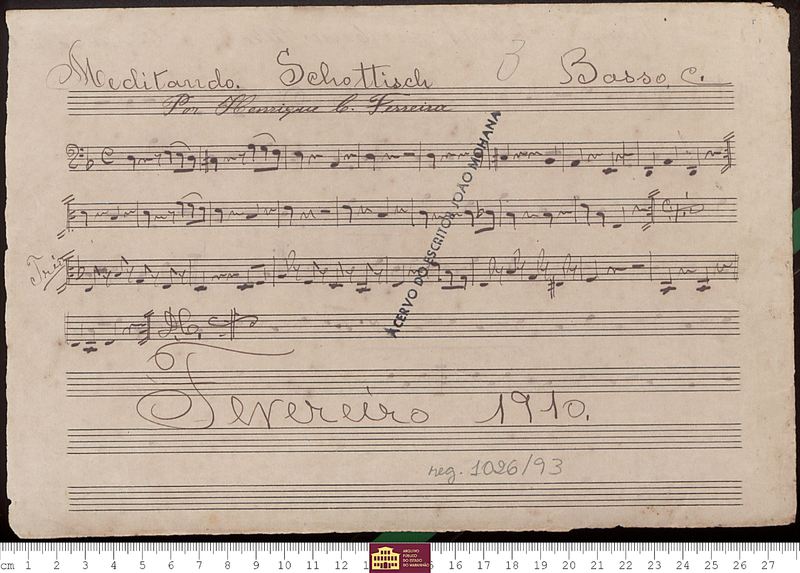 Meditando. Schottisch 3 Basso, C.
Por Henrique C. Ferreira
ACERVO DO ESCRITOR JOÃO MOHANA
Trio
D.C.
Fevereiro 1910.
neg. 1026/93
cm 1 2 3 4 5 6 7 8 9 10 11 12 1 15 16 17 18 19 20 21 22 23 24 25 26 27
ARQUIVO
PÚBLICO
DO ESTADO
DO MARANHÃO